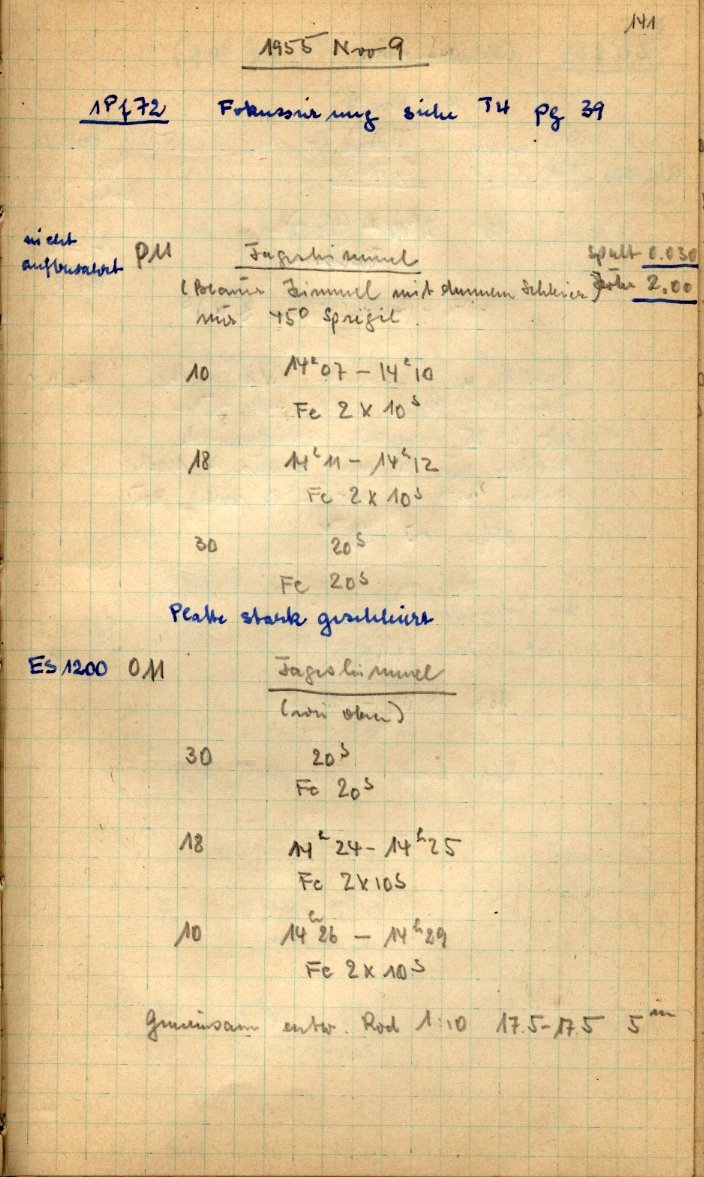 141
1955 Nov 9
1Pf72 Fokussierung siehe T4 pg 39
nicht
aufbewahrt
PM Tageshimmel Spalt 0.030
(Blauer Himmel mit dünnem Schleier) Höhe 2.00
45° Spiegel
10 14h07 – 14h10
Fe 2 x 10s
18 14h11 – 14h12
Fe 2 x 10s
30 20s
Fe 20s
Platte stark geschleiert
ES 1200 OM Tageshimmel
(wie oben)
30 20s
Fe 20s
18 14h24 – 14h25
Fe 2x10s
10 14h26 – 14h29
Fe 2 x 10s
Gemeinsam entw. Rod 1:10 17.5–17.5 5m